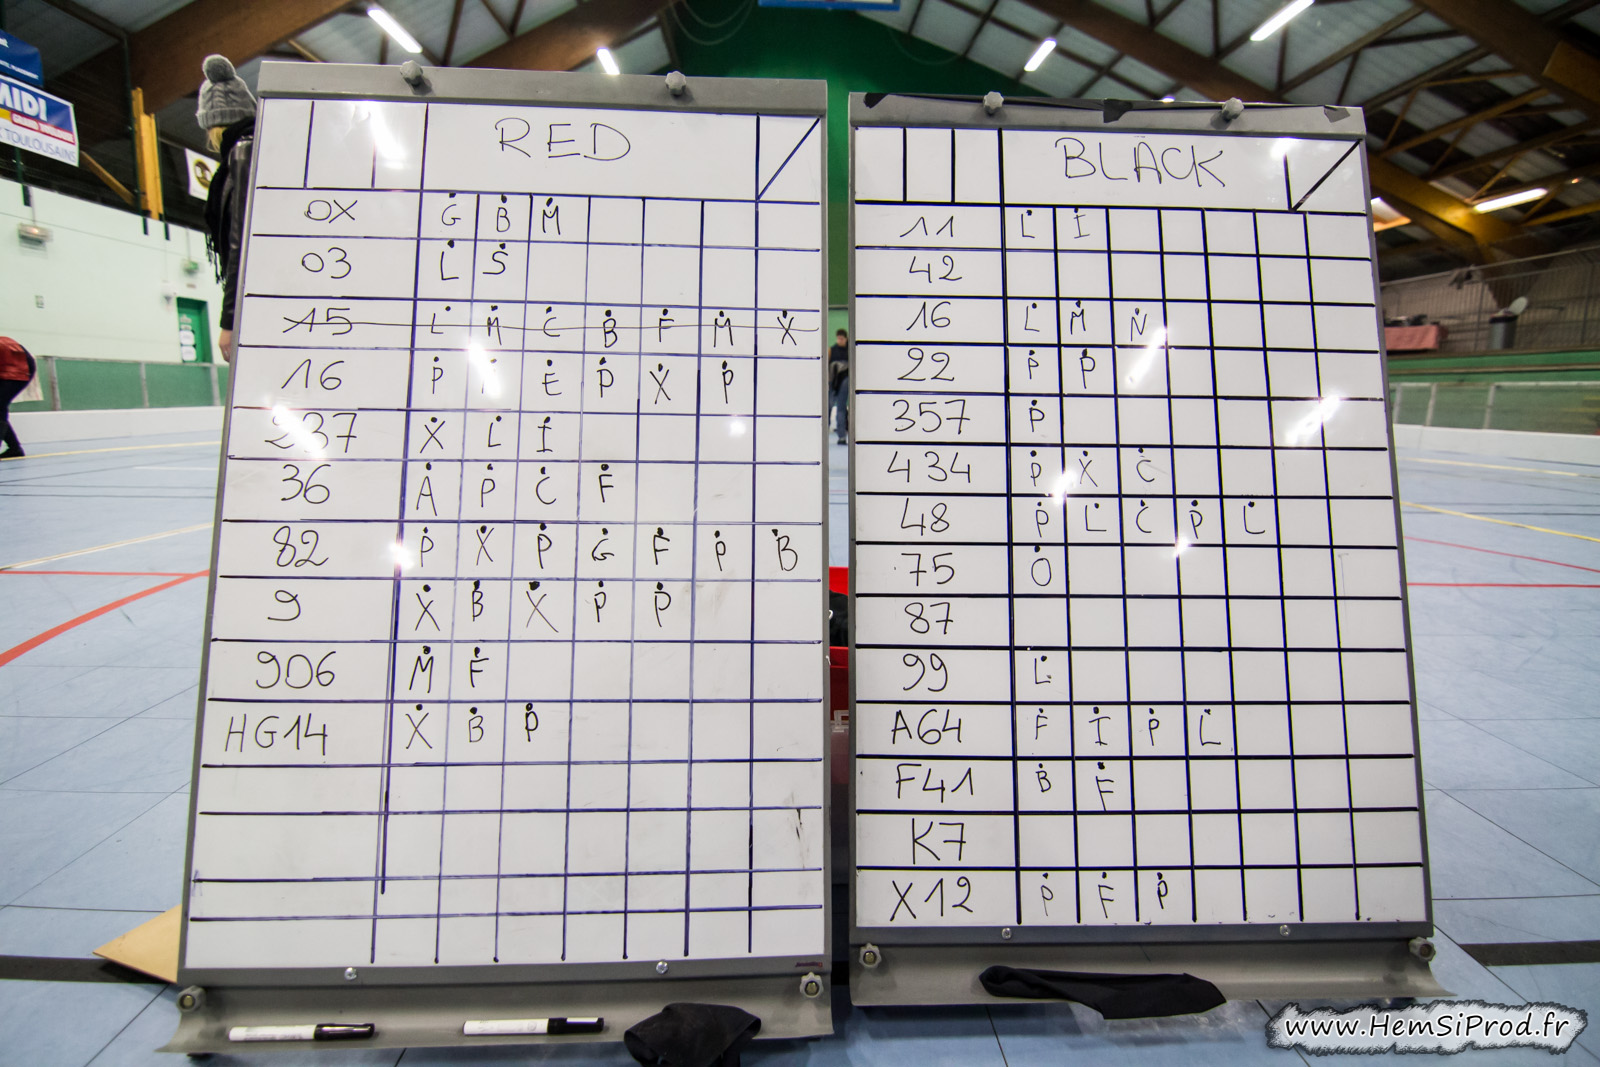 MIDI
TOULOUSAINS
RED
0X G B M
03 L S
15 L M C B F M X
16 P E P X P
237 X L I
36 A P C F
82 P X P G F P B
9 X B X P P
906 M F
HG14 X B P
BLACK
11 L I
42
16 L M N
22 P P
357 P
434 P X C
48 P L C P L
75 O
87
99 L
A64 F I P L
F41 B F
K7
X12 P F P
www.HemSiProd.fr